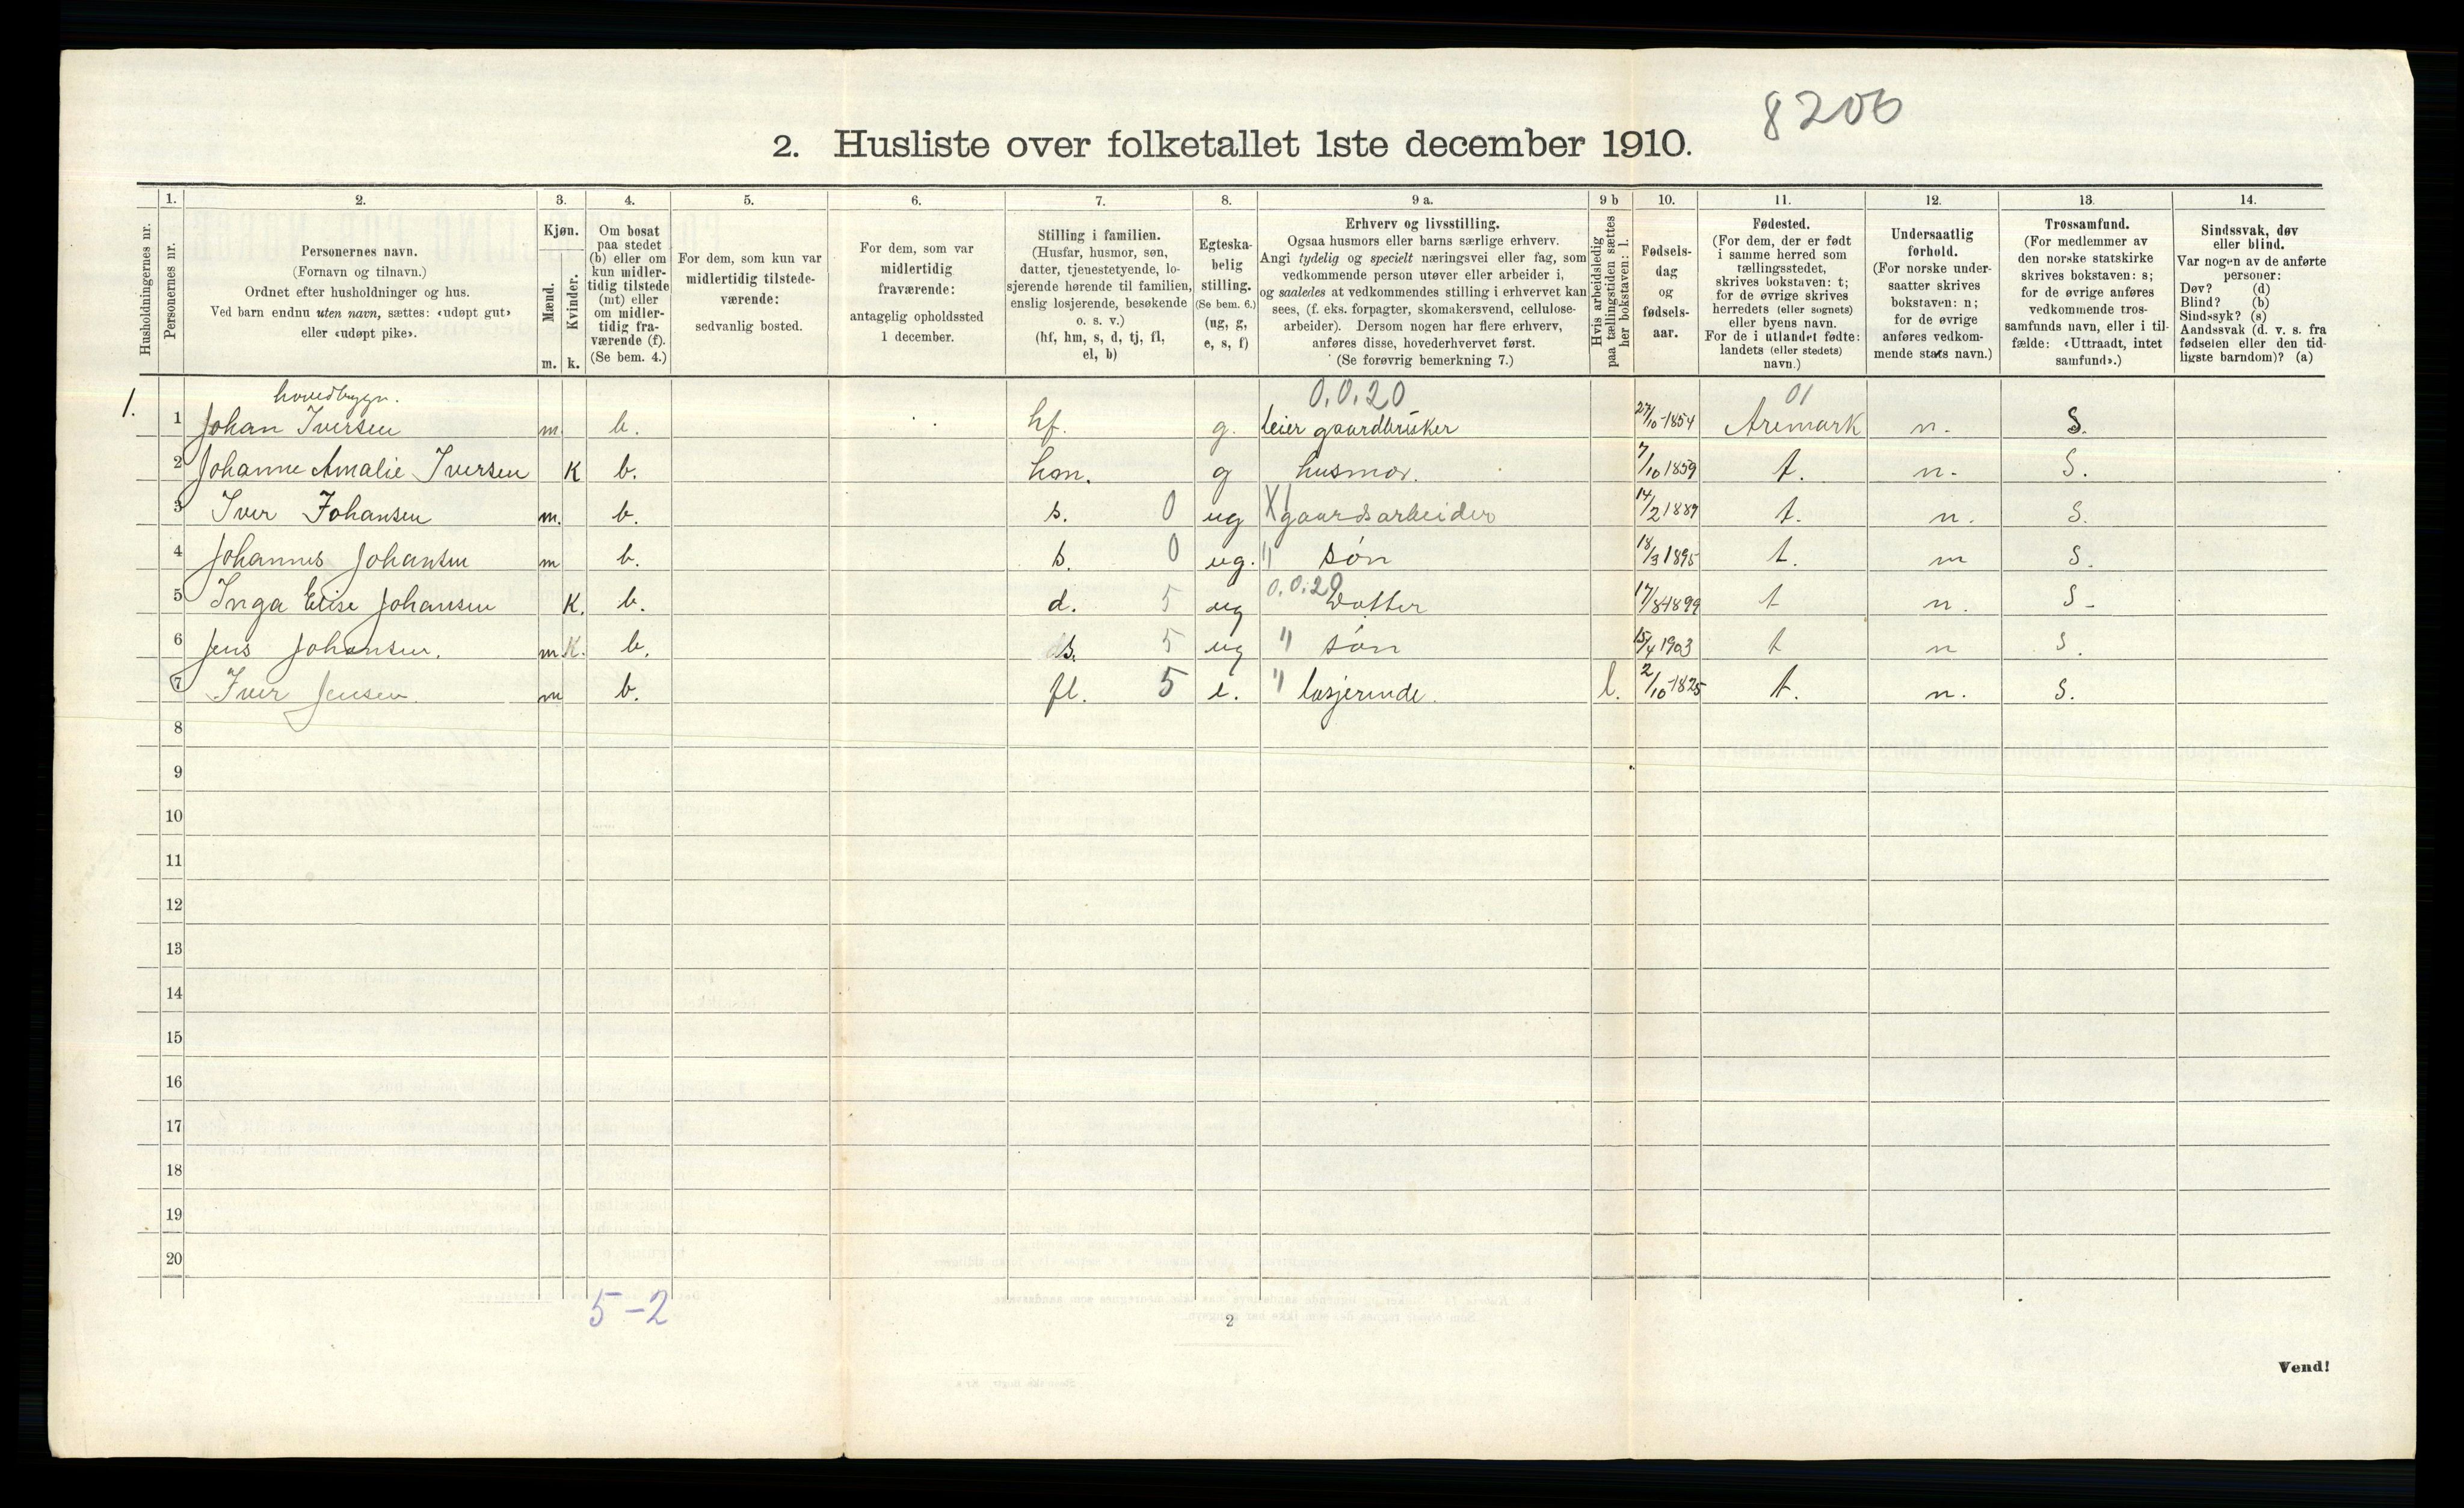 8200
2. Husliste over folketallet 1ste december 1910.
Husholdningernes nr.
1.
Personernes nr.
2.
Personernes navn.
(Fornavn og tilnavn.)
Ordnet efter husholdninger og hus.
Ved barn endnu uten navn, sættes: «udøpt gut»
eller «udøpt pike».
3.
Kjøn.
Mænd.
Kvinder.
m. k.
4.
Om bosat
paa stedet
(b) eller om
kun midler-
tidig tilstede
(mt) eller
om midler-
tidig fra-
værende (f).
(Se bem. 4.)
5.
For dem, som kun var
midlertidig tilstede-
værende:
sedvanlig bosted.
6.
For dem, som var
midlertidig
fraværende:
antagelig opholdssted
1 december.
7.
Stilling i familien.
(Husfar, husmor, søn,
datter, tjenestetyende, lo-
sjerende hørende til familien,
enslig losjerende, besøkende
o. s. v.)
(hf, hm, s, d, tj, fl,
el, b)
8.
Egteska-
belig
stilling.
(Se bem. 6.)
(ug, g,
e, s, f)
9 a.
Erhverv og livsstilling.
Ogsaa husmors eller barns særlige erhverv.
Angi tydelig og specielt næringsvei eller fag, som
vedkommende person utøver eller arbeider i,
og saaledes at vedkommendes stilling i erhvervet kan
sees, (f. eks. forpagter, skomakersvend, cellulose-
arbeider). Dersom nogen har flere erhverv,
anføres disse, hovederhvervet først.
(Se forøvrig bemerkning 7.)
9 b
Hvis arbeidsledig
paa tællingstiden sættes
her bokstaven: l.
10.
Fødsels-
dag
og
fødsels-
aar.
11.
Fødested.
(For dem, der er født
i samme herred som
tællingsstedet,
skrives bokstaven: t;
for de øvrige skrives
herredets (eller sognets)
eller byens navn.
For de i utlandet fødte:
landets (eller stedets)
navn.)
12.
Undersaatlig
forhold.
(For norske under-
saatter skrives
bokstaven: n;
for de øvrige
anføres vedkom-
mende stats navn.)
13.
Trossamfund.
(For medlemmer av
den norske statskirke
skrives bokstaven: s;
for de øvrige anføres
vedkommende tros-
samfunds navn, eller i til-
fælde: «Uttraadt, intet
samfund».)
14.
Sindssvak, døv
eller blind.
Var nogen av de anførte
personer:
Døv? (d)
Blind? (b)
Sindssyk? (s)
Aandssvak (d. v. s. fra
fødselen eller den tid-
ligste barndom)? (a)
hovedbygn. 0.0.20 01
1. 1 Johan Iversen m b. hf. g. leier gaardbruker 27/10-1854 Aremark n. S.
2 Johanne Amalie Iversen K b. hm. g husmor. 7/10 1859 t. n. S.
3 Iver Johansen m. b. s. 0 ug X gaardsarbeider 14/2 1889 t. n. S.
4 Johannes Johansen m b. s. 0 ug. " søn 18/3 1895 t. n S.
5 Inga Elise Johansen K. b. d. 5 ug 0.0.20 Datter 17/8 1899 t n. S.
6 Jens Johansen. m K. b. s. 5 ug " søn 15/4 1903 t n S.
7 Iver Jensen m b. fl. 5 e. " losjerende. l. 2/10-1825 t. n. S.
8
9
10
11
12
13
14
15
16
17
18
19
20
5-2
2
Vend!